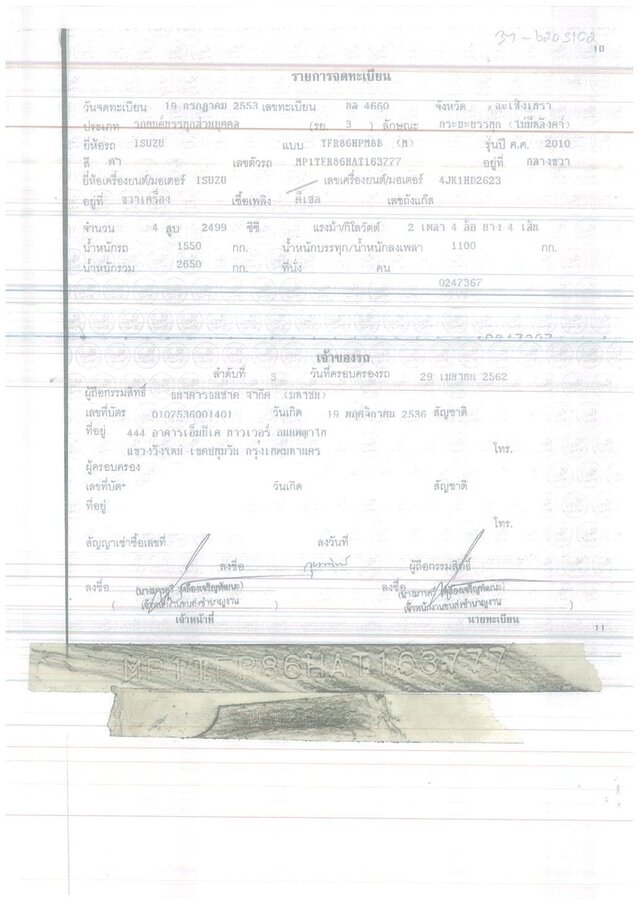 10
รายการจดทะเบียน
วันจดทะเบียน 19 กรกฎาคม 2553 เลขทะเบียน ผล 4660 จังหวัด ฉะเชิงเทรา
ประเภท รถยนต์บรรทุกส่วนบุคคล (รย. 3 ) ลักษณะ กระบะบรรทุก (ไม่มีหลังคา)
ยี่ห้อรถ ISUZU แบบ TFR86HPM8B (M) รุ่นปี ค.ศ. 2010
สี ดำ เลขตัวรถ MP1TFR86HAT163777 อยู่ที่ กลางขวา
ยี่ห้อเครื่องยนต์/มอเตอร์ ISUZU เลขเครื่องยนต์/มอเตอร์ 4JK1HD2623
อยู่ที่ ขวาเครื่อง เชื้อเพลิง ดีเซล เลขถังแก๊ส
จำนวน 4 สูบ 2499 ซีซี แรงม้า/กิโลวัตต์ 2 เพลา 4 ล้อ ยาง 4 เส้น
น้ำหนักรถ 1550 กก. น้ำหนักบรรทุก/น้ำหนักลงเพลา 1100 กก.
น้ำหนักรวม 2650 กก. ที่นั่ง คน
0247367
เจ้าของรถ
ลำดับที่ 3 วันที่ครอบครองรถ 29 เมษายน 2562
ผู้ถือกรรมสิทธิ์ ธนาคารธนชาต จำกัด (มหาชน)
เลขที่บัตร 0107536001401 วันเกิด 19 พฤศจิกายน 2536 สัญชาติ
ที่อยู่ 444 อาคารเอ็มบีเค ทาวเวอร์ ถนนพญาไท
แขวงวังใหม่ เขตปทุมวัน กรุงเทพมหานคร โทร.
ผู้ครอบครอง
เลขที่บัตร วันเกิด สัญชาติ
ที่อยู่
โทร.
สัญญาเช่าซื้อเลขที่ ลงวันที่
ลงชื่อ ผู้ถือกรรมสิทธิ์
ลงชื่อ ลงชื่อ
เจ้าพนักงานขนส่งชำนาญงาน เจ้าพนักงานขนส่งชำนาญงาน
เจ้าหน้าที่ นายทะเบียน
11
MP1TFR86HAT163777